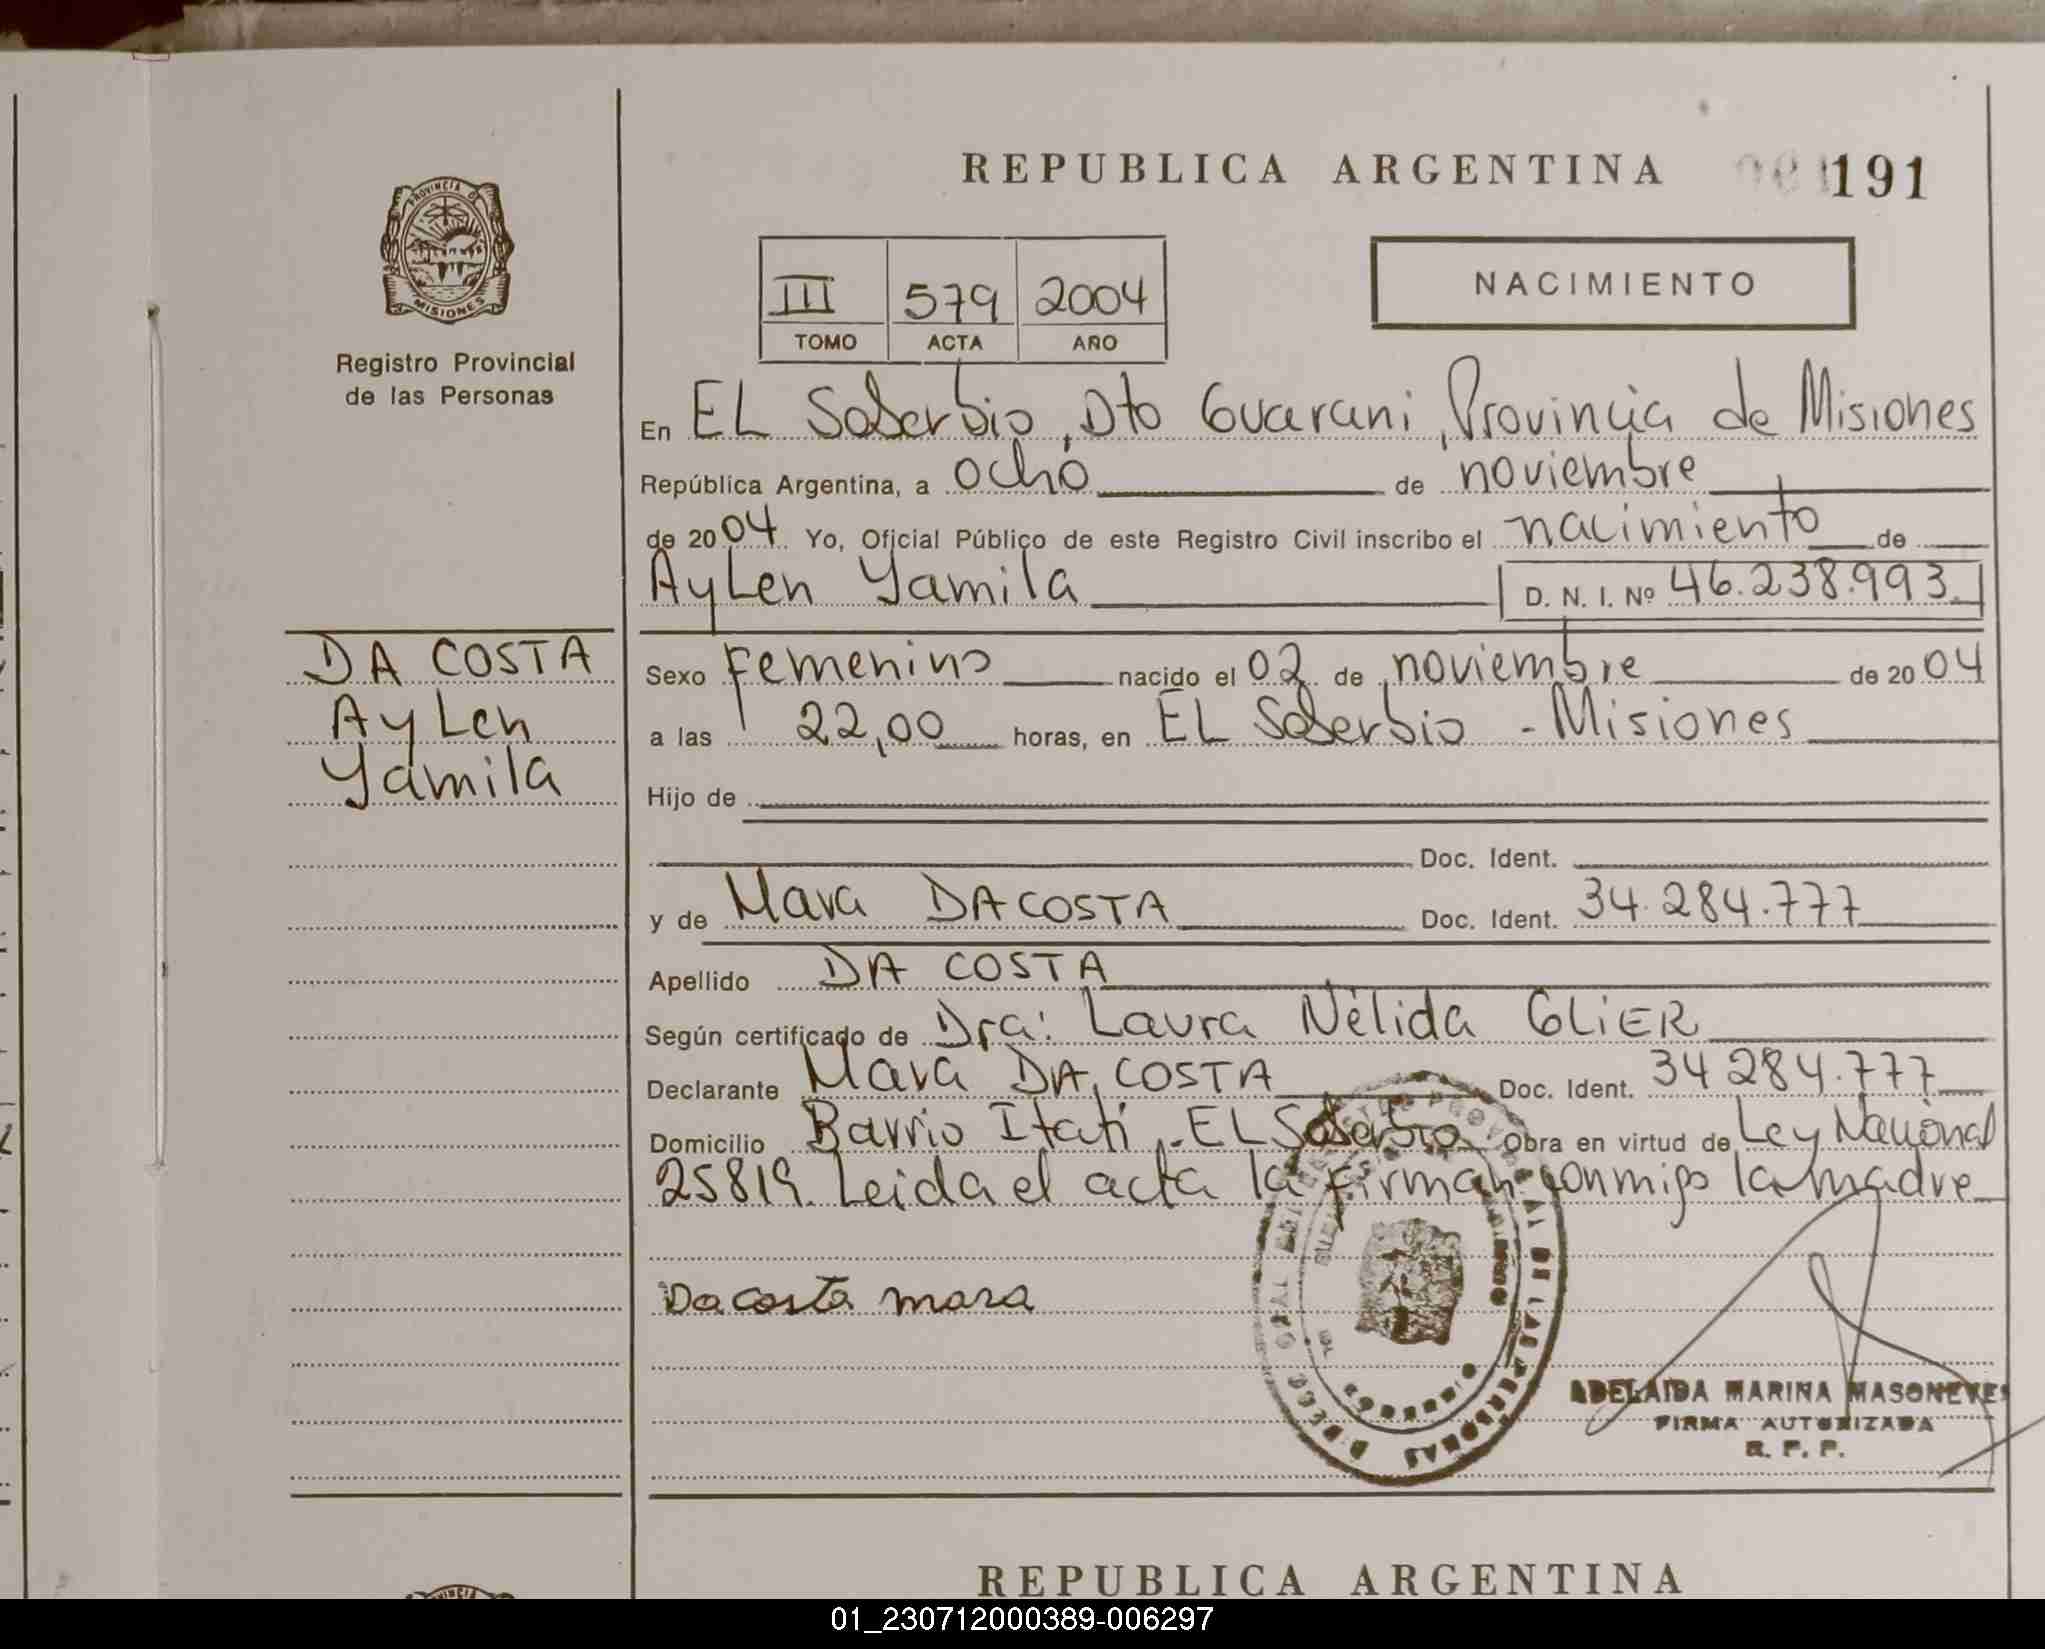 REPUBLICA ARGENTINA
191
PROVINCIA DE
MISIONES
Registro Provincial
de las Personas
III 579 2004
TOMO ACTA AÑO
NACIMIENTO
En EL Soberbio, Dto Guarani, Provincia de Misiones
República Argentina, a ocho de noviembre
de 2004 Yo, Oficial Público de este Registro Civil inscribo el nacimiento de
Aylen Yamila D. N. I. Nº 46.238.993
DA COSTA
Aylen
Yamila
Sexo Femenino nacido el 02 de noviembre de 2004
a las 22,00 horas, en EL Soberbio - Misiones
Hijo de
Doc. Ident.
y de Mara DA COSTA Doc. Ident. 34.284.777
Apellido DA COSTA
Según certificado de Dra: Laura Nélida GLIER
Declarante Mara DA COSTA Doc. Ident. 34 284.777
Domicilio Barrio Itatí, - EL Soberbio Obra en virtud de Ley Nacional
25819. Leida el acta la firman conmigo la madre
Da costa mara
DE LAS PERSONAS
ADELAIDA MARINA MASONEVES
FIRMA AUTORIZADA
R. P. P.
REPUBLICA ARGENTINA
01_230712000389-006297